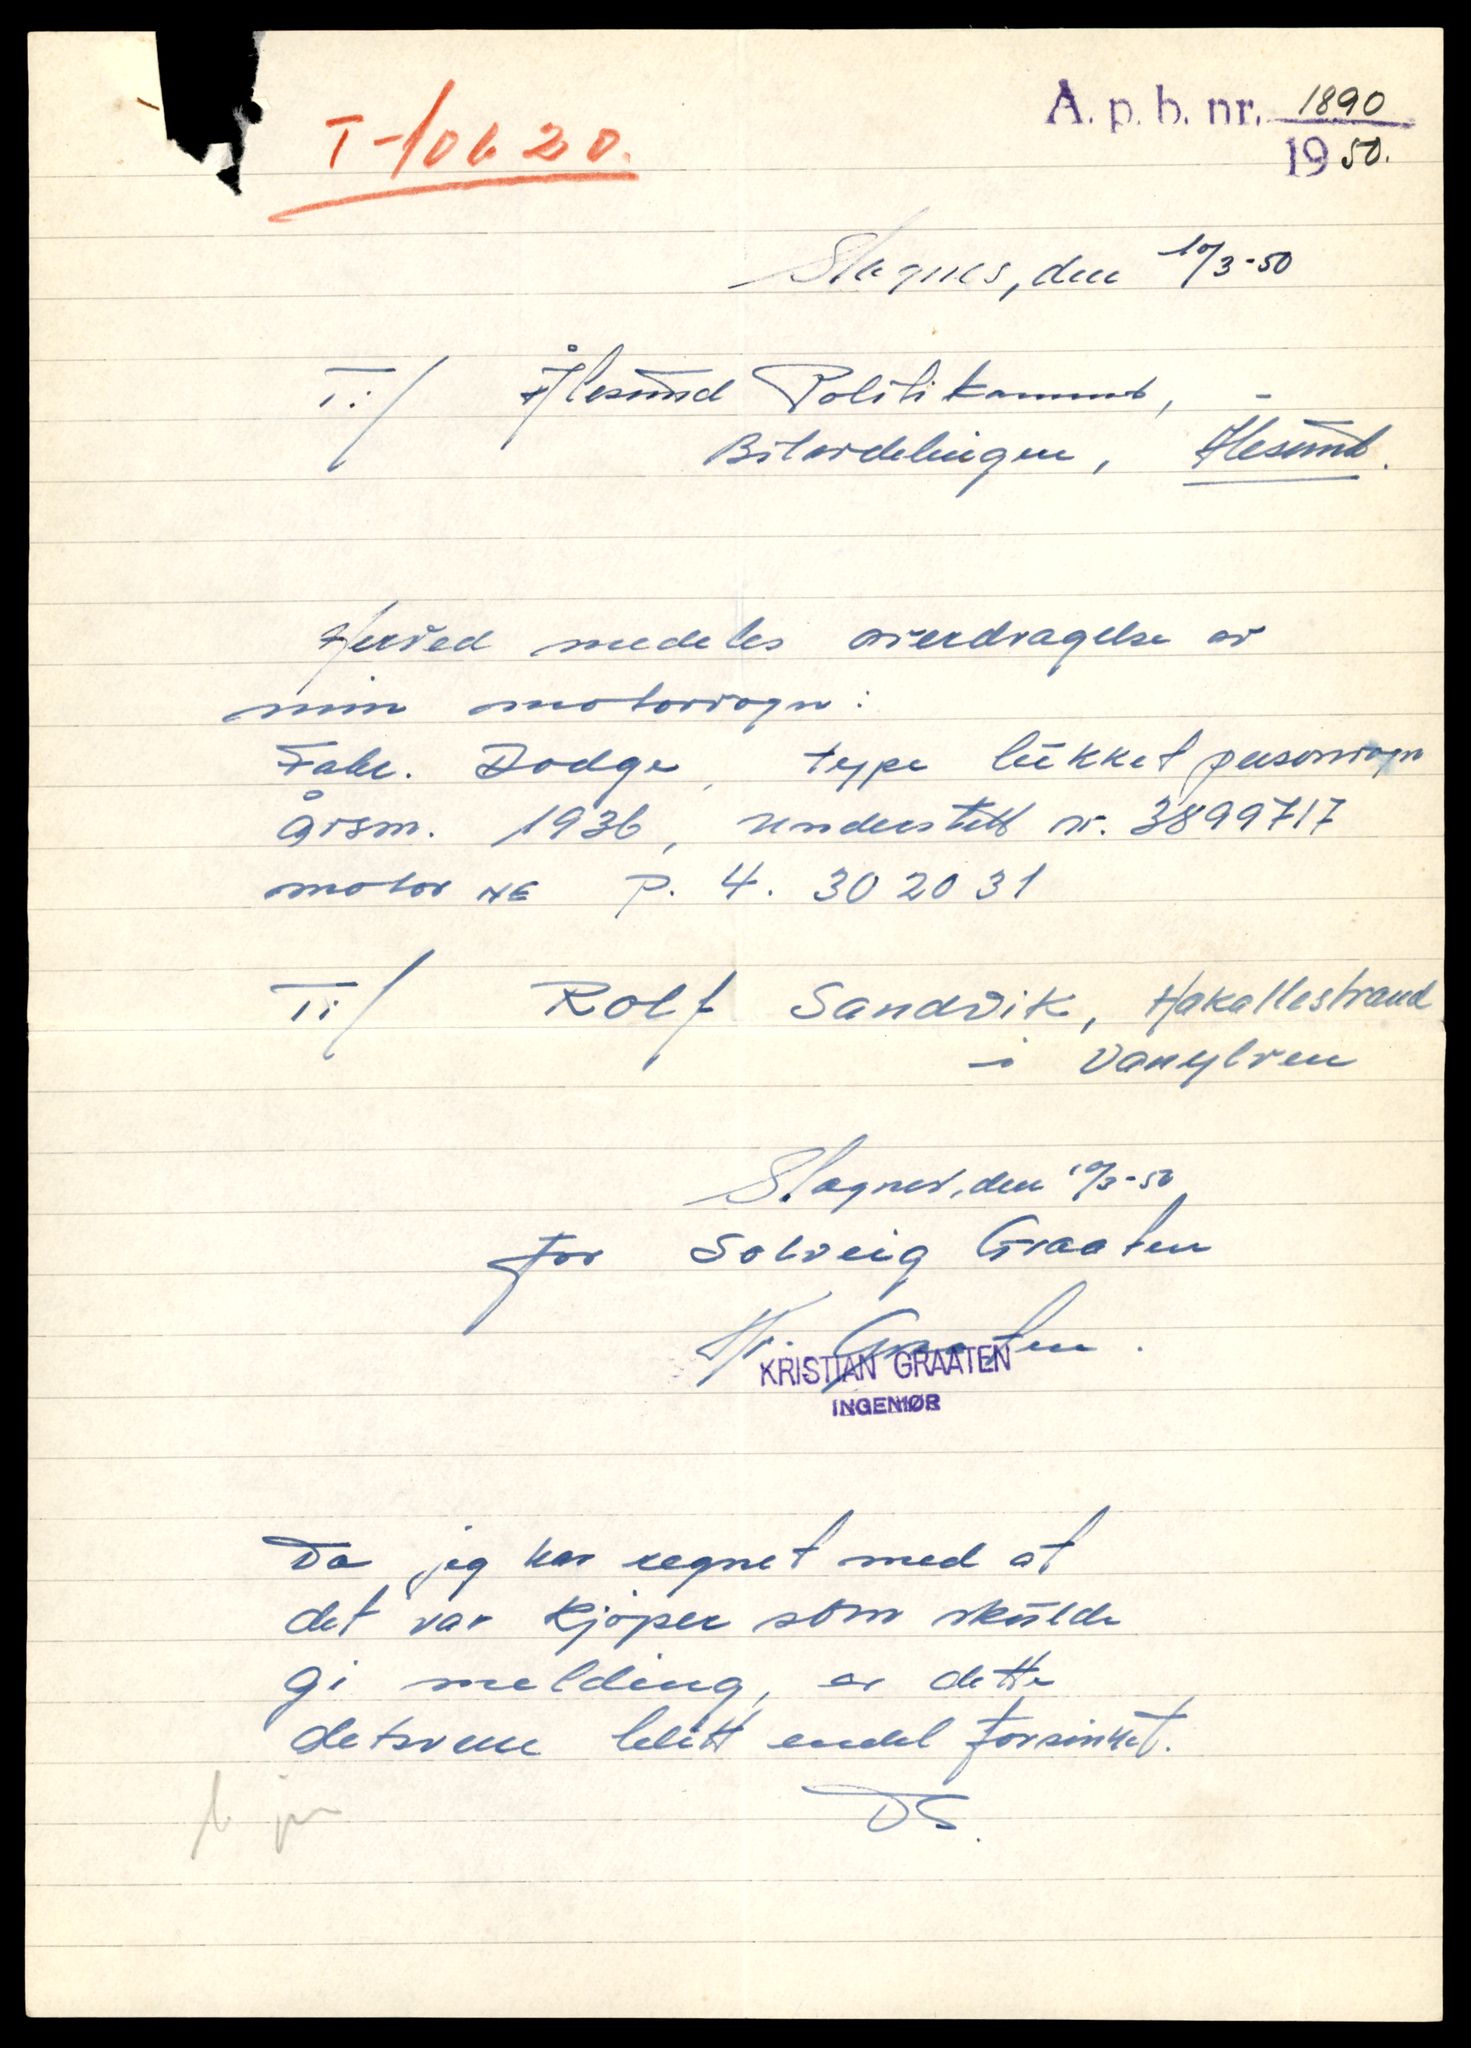 T-10620.
A. p. b. nr. 1890
1950.
Slagnes, den 10/3-50
Til Ålesund Politikammer,
Bilavdelingen, Ålesund.
Herved medeles overdragelse av
min motorvogn:
Fabr. Dodge, type lukket personvogn
Årsm. 1936, understell nr. 3899717
motor nr P. 4. 302031
Til Rolf Sandvik, Hakallestrand
i Vanylven
Slagnes, den 10/3-50
for Solveig Graaten
Kr. Graaten.
KRISTIAN GRAATEN
INGENIØR
Da jeg har regnet med at
det var kjøper som skulde
gi melding, er dette
desverre blitt endel forsinket.
DS.